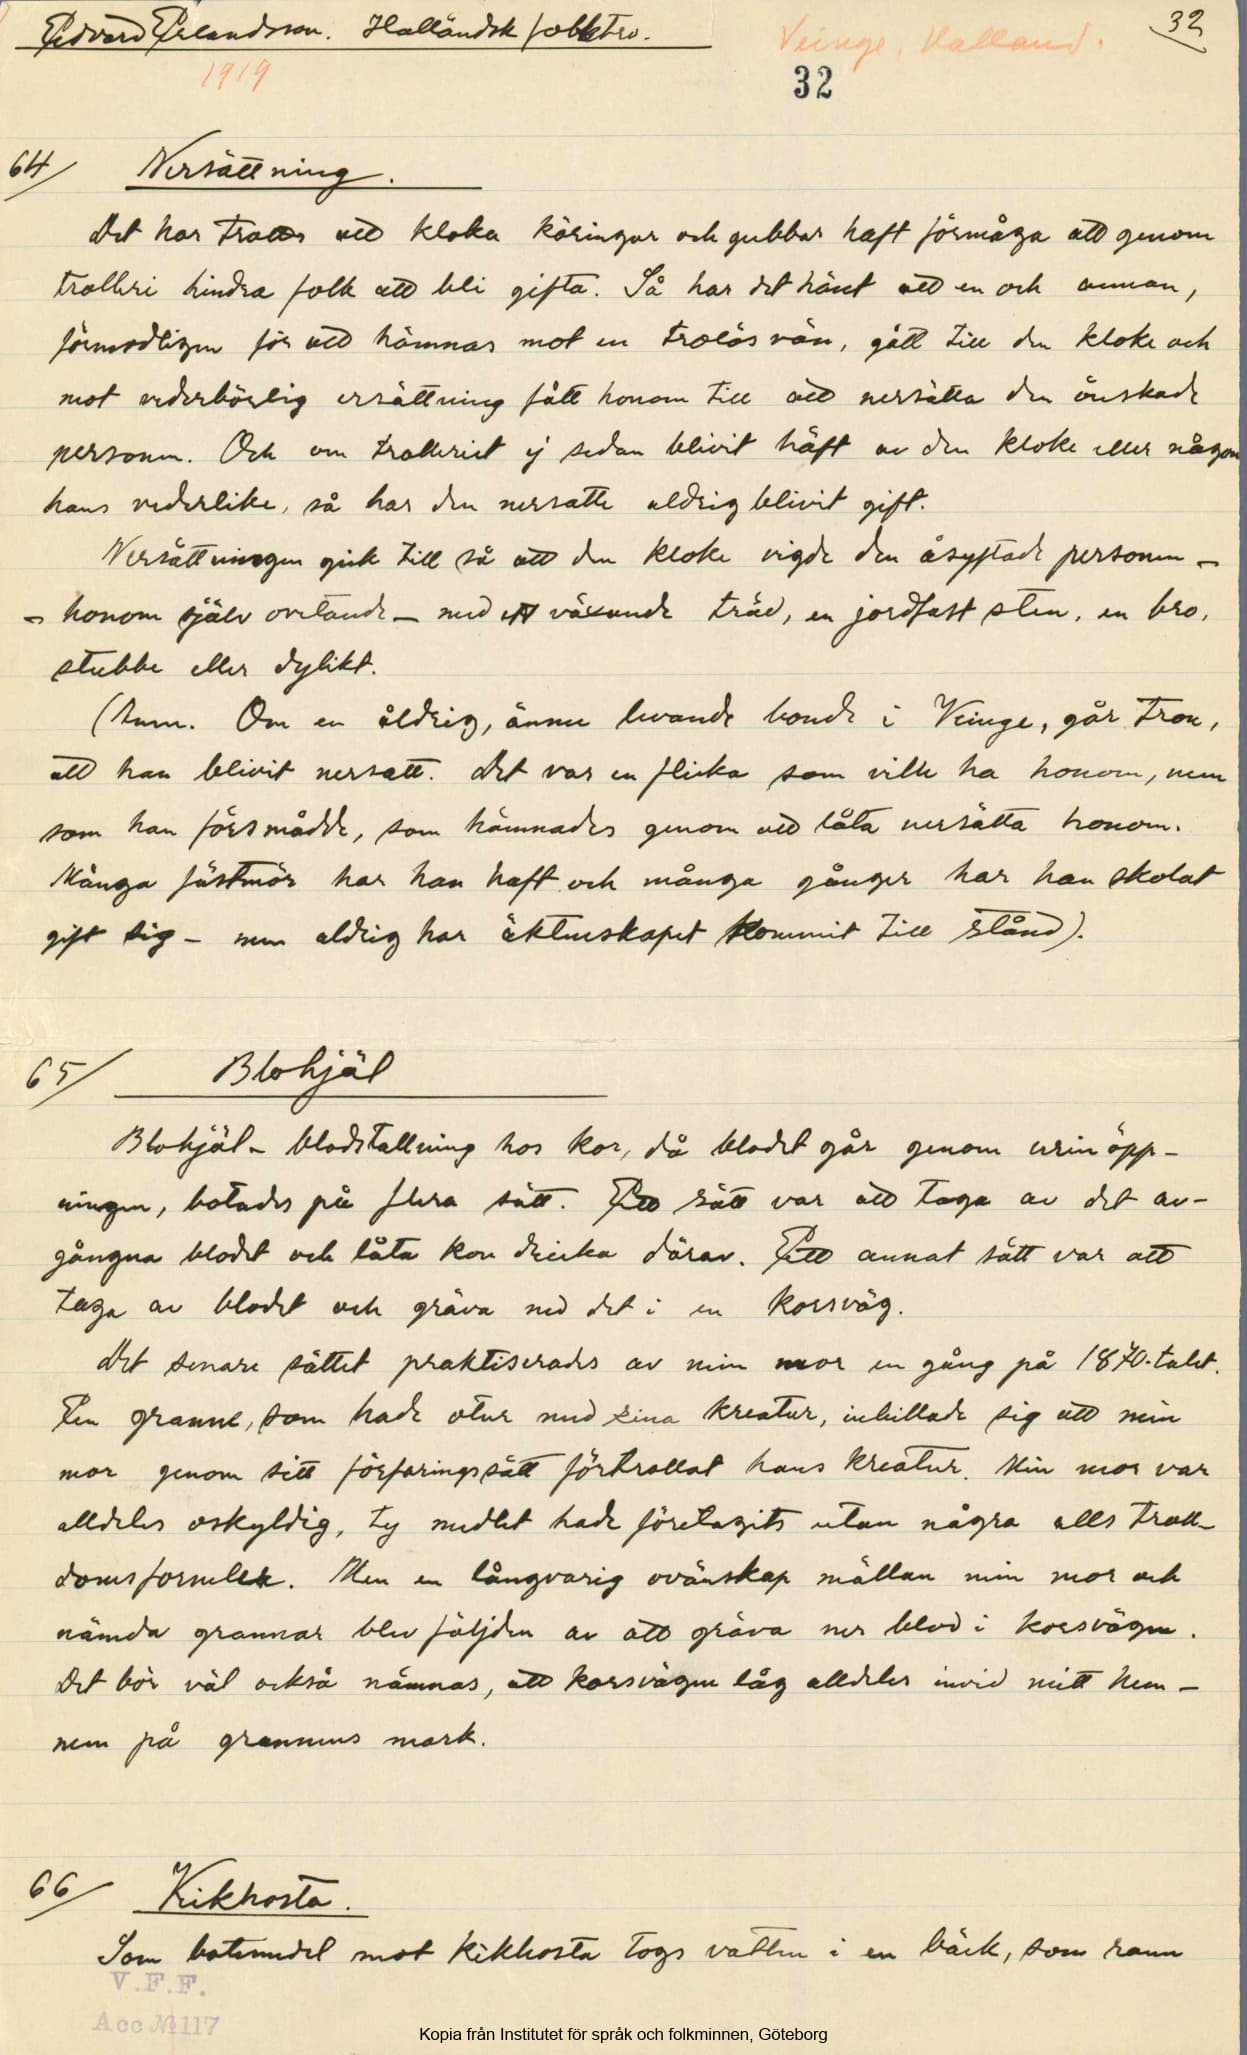 Edvard Erlandsson. Halländsk folktro.
Veinge, Halland.
32
1919
32
64/ Nersättning.
Det har trotts att kloka käringar och gubbar haft förmåga att genom
trolleri hindra folk att bli gifta. Så har det hänt att en och annan,
förmodligen för att hämnas mot en trolös vän, gått till den kloke och
mot vederbörlig ersättning fått honom till att nersätta den önskade
personen. Och om trolleriet ej sedan blivit häft av den kloke eller någon
hans vederlike, så har den nersatte aldrig blivit gift.
Nersättningen gick till så att den kloke vigde den åsyftade personen –
– honom själv ovetande – med ett växande träd, en jordfast sten, en bro,
stubbe eller dylikt.
(Anm. Om en åldrig, ännu levande bonde i Veinge, går tron,
att han blivit nersatt. Det var en flicka som ville ha honom, men
som han försmådde, som hämnades genom att låta nersätta honom.
Många fästmör har han haft och många gånger har han skolat
gift sig – men aldrig har äktenskapet kommit till stånd).
65/ Blohjäl
Blohjäl – blodstallning hos kor, då blodet går genom urinöpp-
ningen, botades på flera sätt. Ett sätt var att taga av det av-
gångna blodet och låta kon dricka därav. Ett annat sätt var att
taga av blodet och gräva ned det i en korsväg.
Det senare sättet praktiserades av min mor en gång på 1870-talet.
En granne, som hade otur med sina kreatur, inbillade sig att min
mor genom sitt förfaringssätt förtrollat hans kreatur. Min mor var
alldeles oskyldig, ty medlet hade företagits utan några alls troll-
domsformler. Men en långvarig ovänskap mällan min mor och
nämda grannar blev följden av att gräva ner blod i korsvägen.
Det bör väl också nämnas, att korsvägen låg alldeles invid mitt hem –
men på grannens mark.
66/ Kikhosta.
Som botemedel mot kikhosta togs vatten i en bäck, som rann
V.F.F.
Acc № 117
Kopia från Institutet för språk och folkminnen, Göteborg